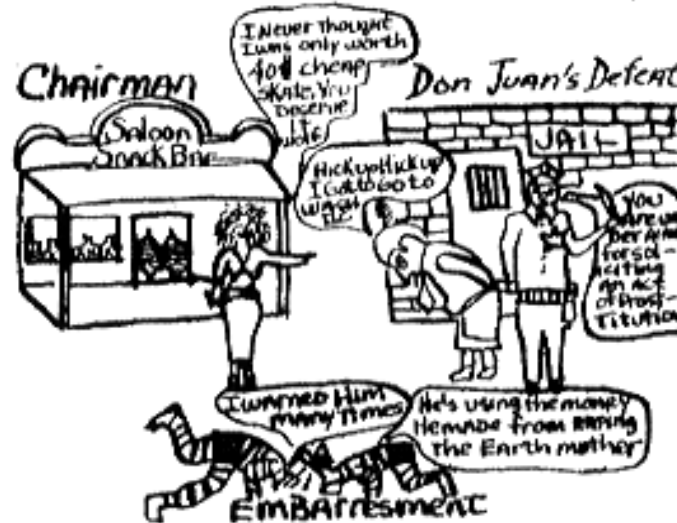 Chairman
Don Juan's Defeat
Saloon
Snack Bar
I Never Thought
I was only worth
cheap
skate, You
Deserve
Life
Hickup Hickup
I Gotto Go to
WASH
JAIL
You
Are un
Der Arre
for sol-
iciting
An Act
of Prost-
Titution
I warned Him
many Times
He's using the money
He made from RAPing
The Earth mother
EMBArresment